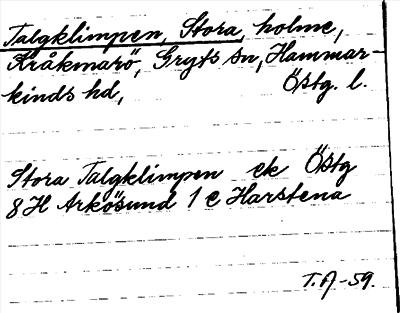 Talgklimpen, Stora, holme,
Kråkmarö, Gryts sn, Hammar-
kinds hd, Östg. l.
Stora Talgklimpen ek Östg
8H Arkösund 1 e Harstena
T.A-59.